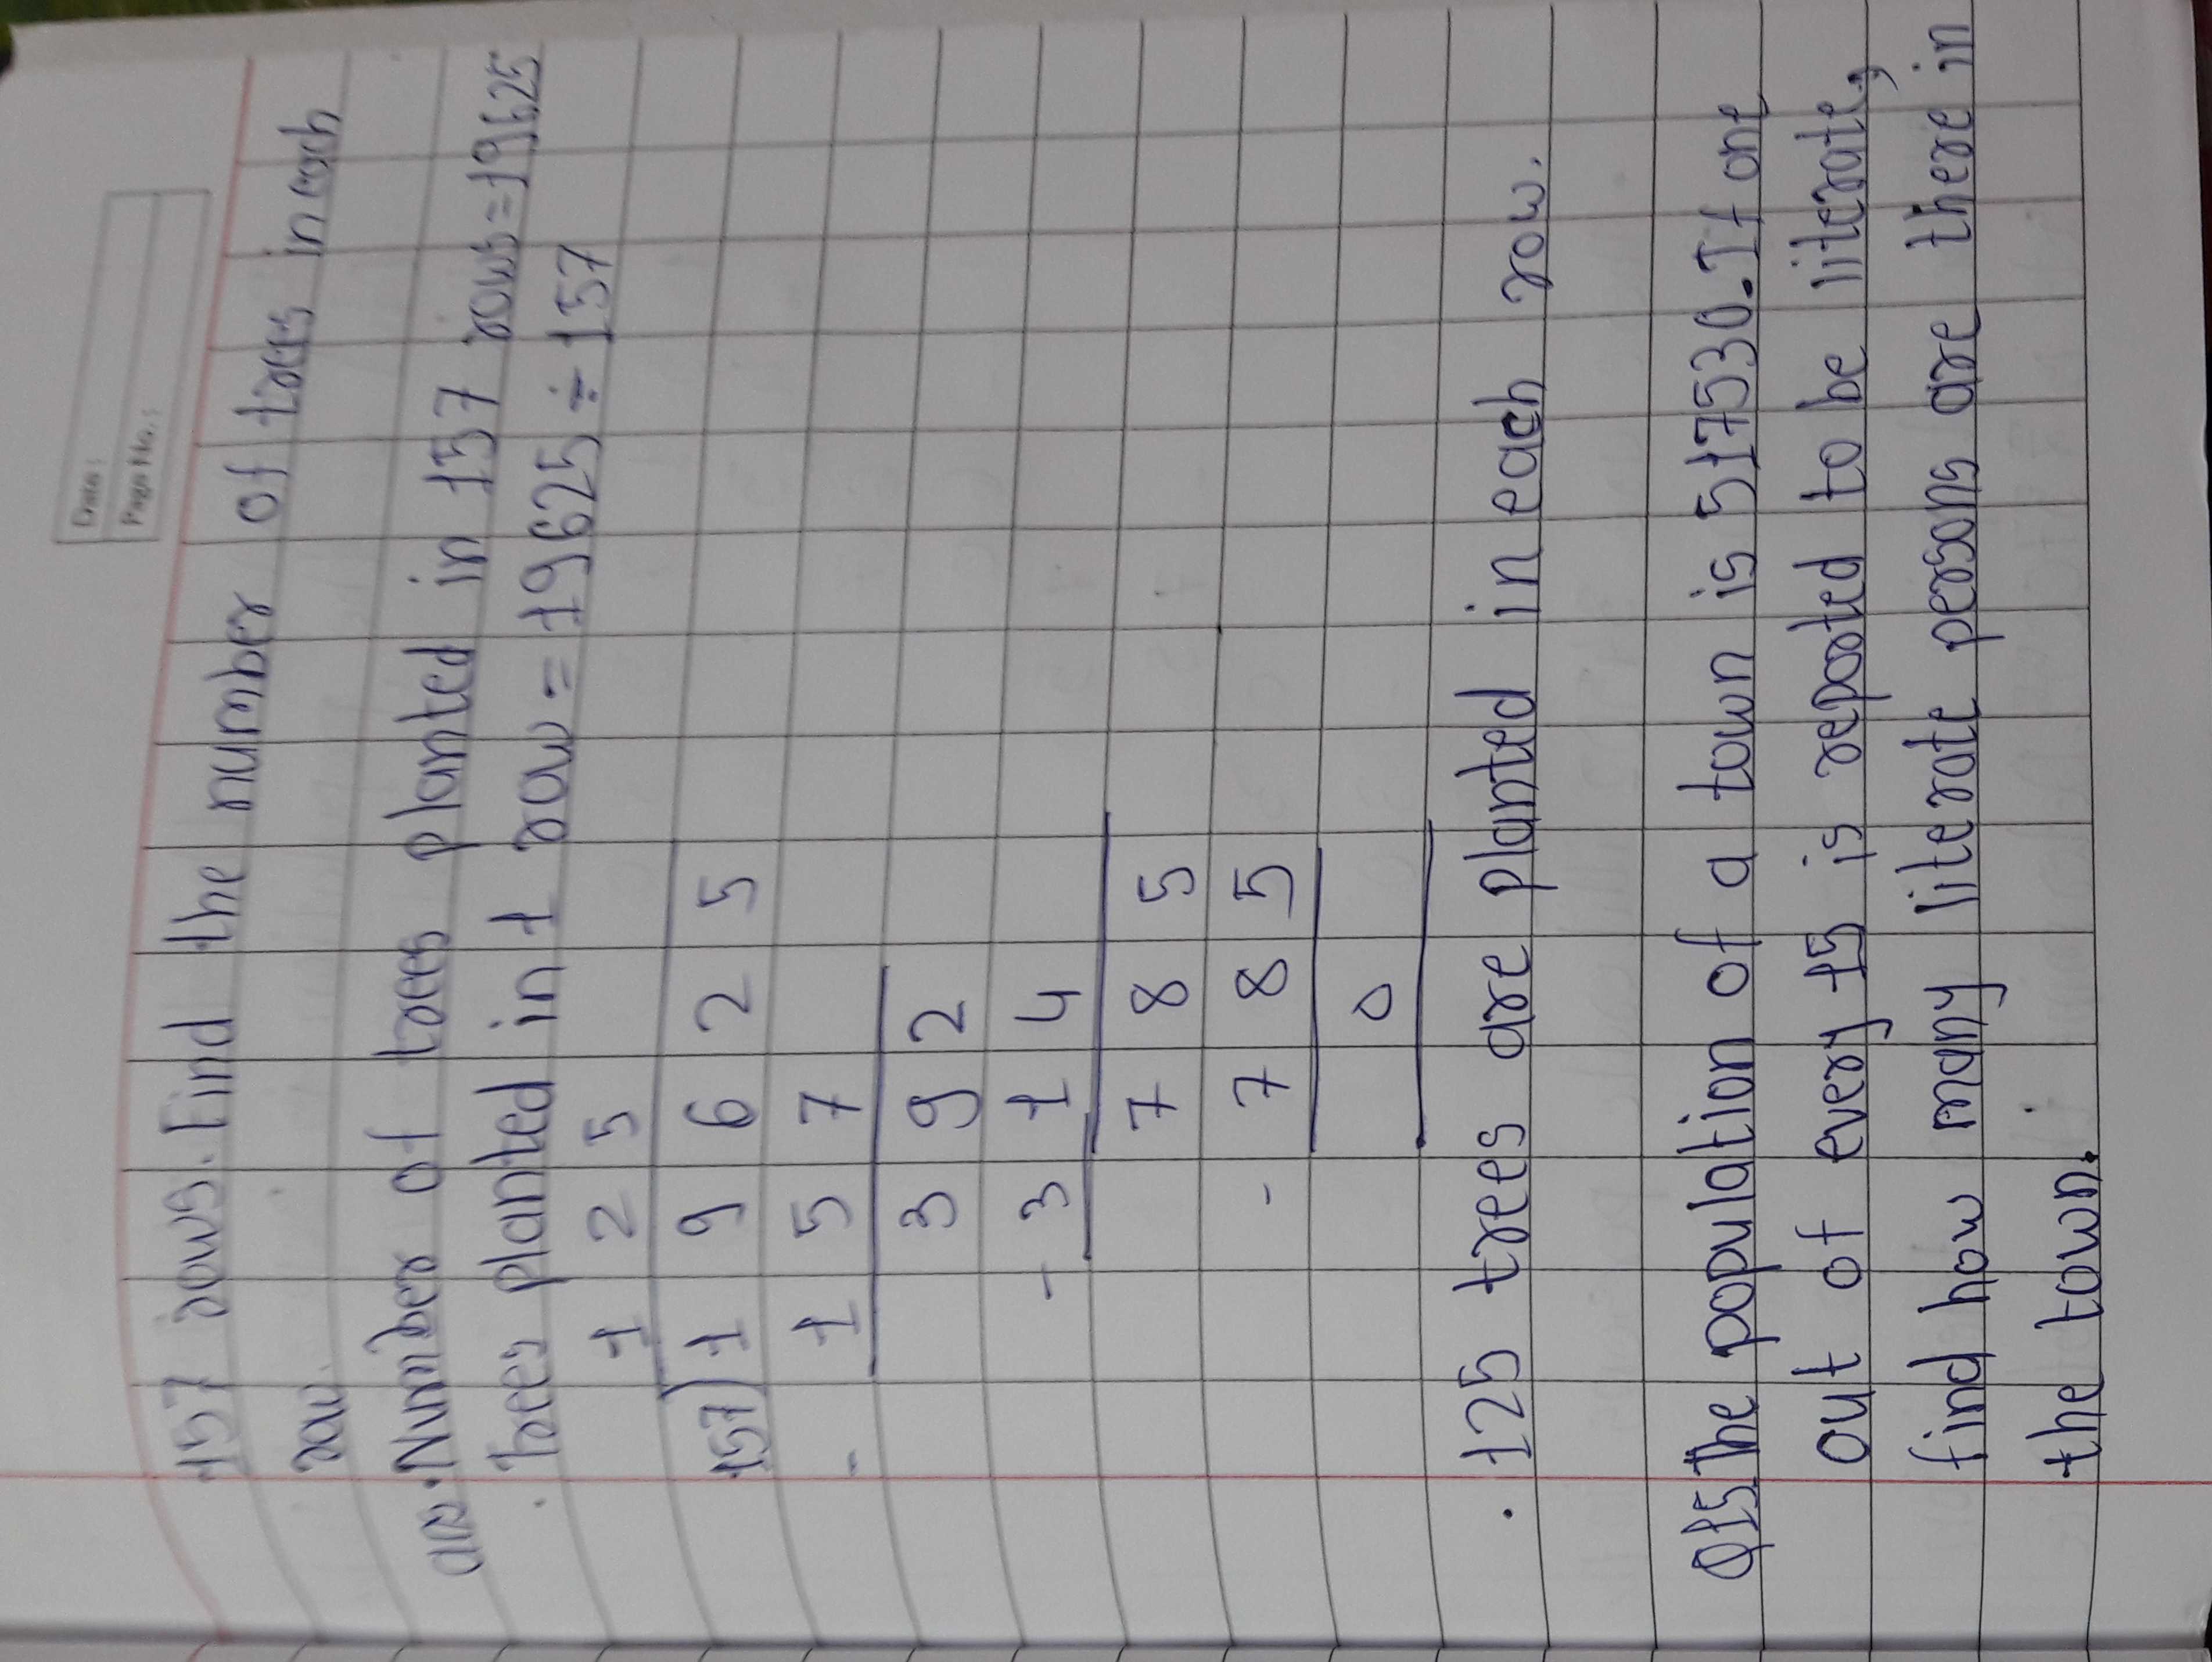 Date :
Page No. :
157 rows. Find the number of trees in each
row.
ans. Number of trees planted in 157 rows=19625
. trees planted in 1 row = 19625 ÷ 157
1 2 5
157) 1 9 6 2 5
- 1 5 7
3 9 2
- 3 1 4
7 8 5
- 7 8 5
0
. 125 trees are planted in each row.
Q15. The population of a town is 517530. If one
out of every 15 is reported to be literate,
find how many literate persons are there in
the town.